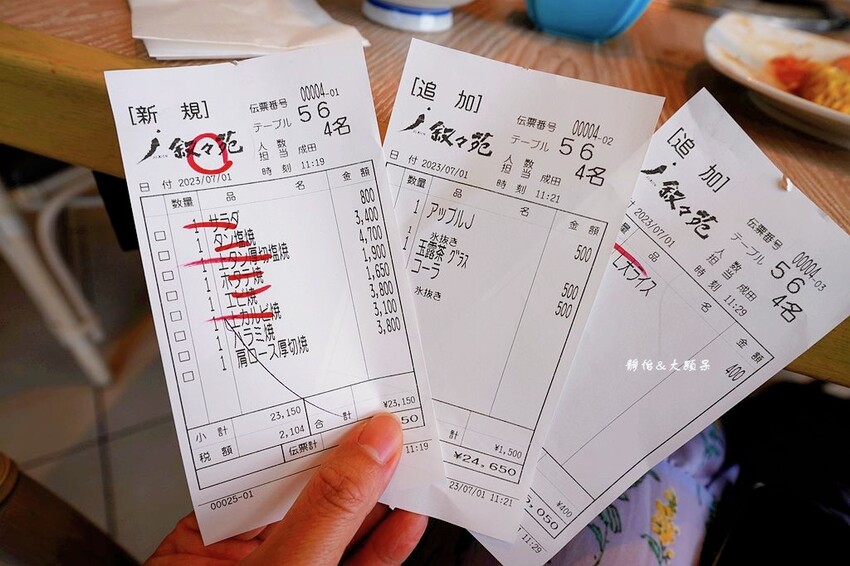 [新 規]
伝票番号 00004-01
叙々苑
テーブル 56
人数 4名
担当 成田
日 付 2023/07/01 時 刻 11:19
数量 品 名 金 額
1 サラダ 800
1 タン塩焼 3,400
1 上タン厚切塩焼 4,700
1 ホタテ焼 1,900
1 エビ焼 1,650
1 上カルビ焼 3,800
1 ハラミ焼 3,100
1 肩ロース厚切焼 3,800
小 計 23,150 合 計 ¥23,150
税 額 2,104 伝票計
50
11:19
00025-01
[追 加]
伝票番号 00004-02
叙々苑
テーブル 56
人数 4名
担当 成田
日 付 2023/07/01 時 刻 11:21
数量 品 名 金 額
1 アップルJ 500
氷抜き
1 玉露茶 グラス 500
1 コーラ 500
氷抜き
計 ¥1,500
¥24,650
23/07/01 11:21
[追 加]
伝票番号 00004-03
叙々苑
テーブル 56
人数 4名
担当 成田
2023/07/01 時 刻 11:29
名 金 額
ズライス 400
¥400
,050
11:29
靜怡&大顆呆